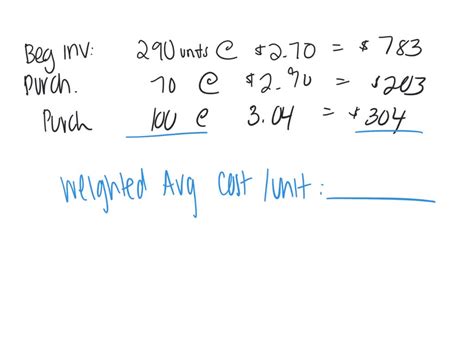 Beg Inv: 290 units @ $2.70 = $783
Purch. 70 @ $2.90 = $203
Purch 100 @ 3.04 = $304
Weighted Avg Cost/unit: